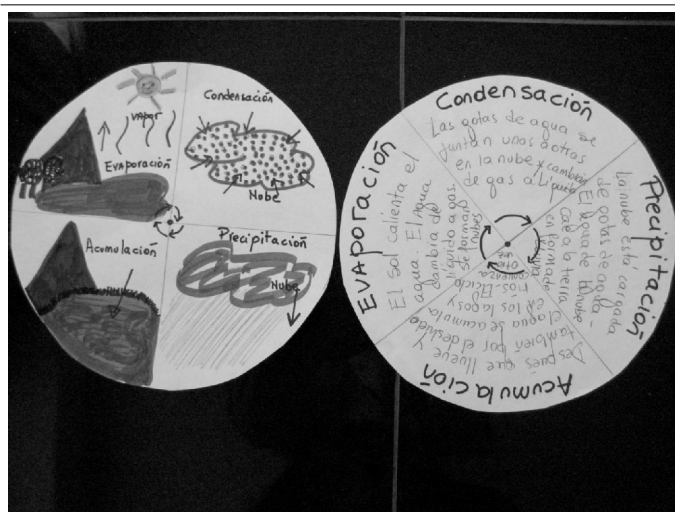 vapor
Evaporación
Condensación
Nube
Acumulación
Precipitación
Nube
Condensación
Las gotas de agua se
juntan unos a otras
en la nube y cambia
de gas a líquido
Precipitación
La nube está cargada
de gotas de agua.
El agua de la nube
cae a la tierra
en forma de
lluvia
Acumulación
Después que llueve y
también por el deshielo
el agua se acumula
en los lagos y
ríos. El ciclo
comienza
otra
vez
Evaporación
El Sol calienta el
agua. El Agua
cambia de
líquido a gas.
Se forman
nubes